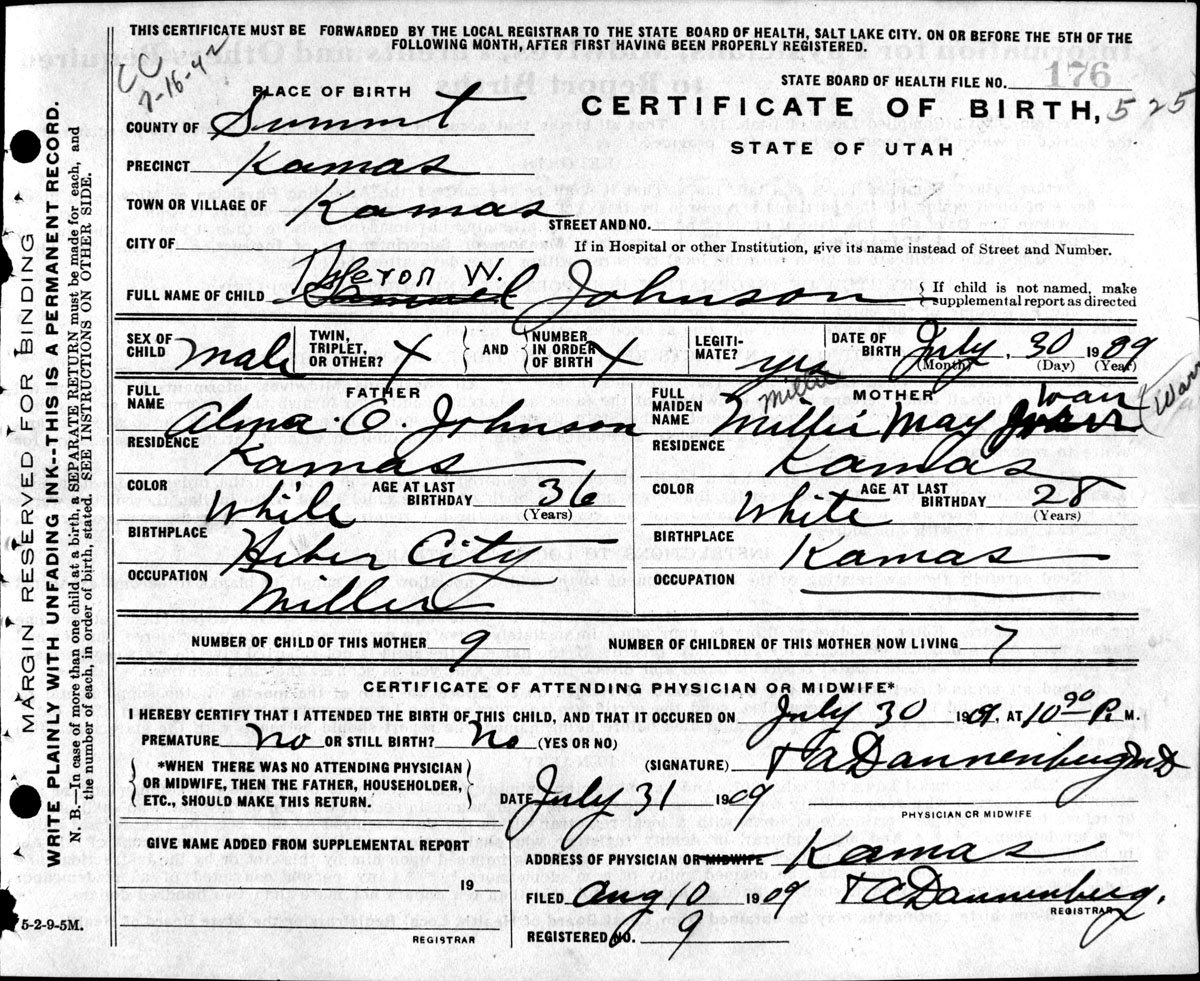 THIS CERTIFICATE MUST BE FORWARDED BY THE LOCAL REGISTRAR TO THE STATE BOARD OF HEALTH, SALT LAKE CITY. ON OR BEFORE THE 5TH OF THE
FOLLOWING MONTH, AFTER FIRST HAVING BEEN PROPERLY REGISTERED.
CC
7-16-42
STATE BOARD OF HEALTH FILE NO. 176
PLACE OF BIRTH
CERTIFICATE OF BIRTH, 525
COUNTY OF Summit
STATE OF UTAH
PRECINCT Kamas
TOWN OR VILLAGE OF Kamas STREET AND NO.
CITY OF If in Hospital or other Institution, give its name instead of Street and Number.
W.
FULL NAME OF CHILD Samuel Johnson { If child is not named, make
supplemental report as directed
SEX OF CHILD Male TWIN, TRIPLET, OR OTHER? X { AND } NUMBER IN ORDER OF BIRTH X LEGITI-MATE? yes DATE OF BIRTH July, 30 1909
(Month) (Day) (Year)
FATHER
FULL NAME Alma O. Johnson
RESIDENCE Kamas
COLOR White AGE AT LAST BIRTHDAY 36 (Years)
BIRTHPLACE Heber City
OCCUPATION Miller
MOTHER
Millie
FULL MAIDEN NAME Millie May
RESIDENCE Kamas
COLOR White AGE AT LAST BIRTHDAY 28 (Years)
BIRTHPLACE Kamas
OCCUPATION
NUMBER OF CHILD OF THIS MOTHER 9 NUMBER OF CHILDREN OF THIS MOTHER NOW LIVING 7
CERTIFICATE OF ATTENDING PHYSICIAN OR MIDWIFE*
I HEREBY CERTIFY THAT I ATTENDED THE BIRTH OF THIS CHILD, AND THAT IT OCCURED ON July 30 1909, AT 10 P. M.
PREMATURE No OR STILL BIRTH? No (YES OR NO)
(SIGNATURE) T A Dannenberg MD
{ *WHEN THERE WAS NO ATTENDING PHYSICIAN
OR MIDWIFE, THEN THE FATHER, HOUSEHOLDER,
ETC., SHOULD MAKE THIS RETURN. }
DATE July 31 1909
PHYSICIAN OR MIDWIFE
GIVE NAME ADDED FROM SUPPLEMENTAL REPORT
19
REGISTRAR
ADDRESS OF PHYSICIAN OR MIDWIFE Kamas
FILED Aug 10 1909 T A Dannenberg.
REGISTRAR
REGISTERED NO. 9
5-2-9-5M.
MARGIN RESERVED FOR BINDING
WRITE PLAINLY WITH UNFADING INK--THIS IS A PERMANENT RECORD.
N. B.—In case of more than one child at a birth, a SEPARATE RETURN must be made for each, and
the number of each, in order of birth, stated. SEE INSTRUCTIONS ON OTHER SIDE.